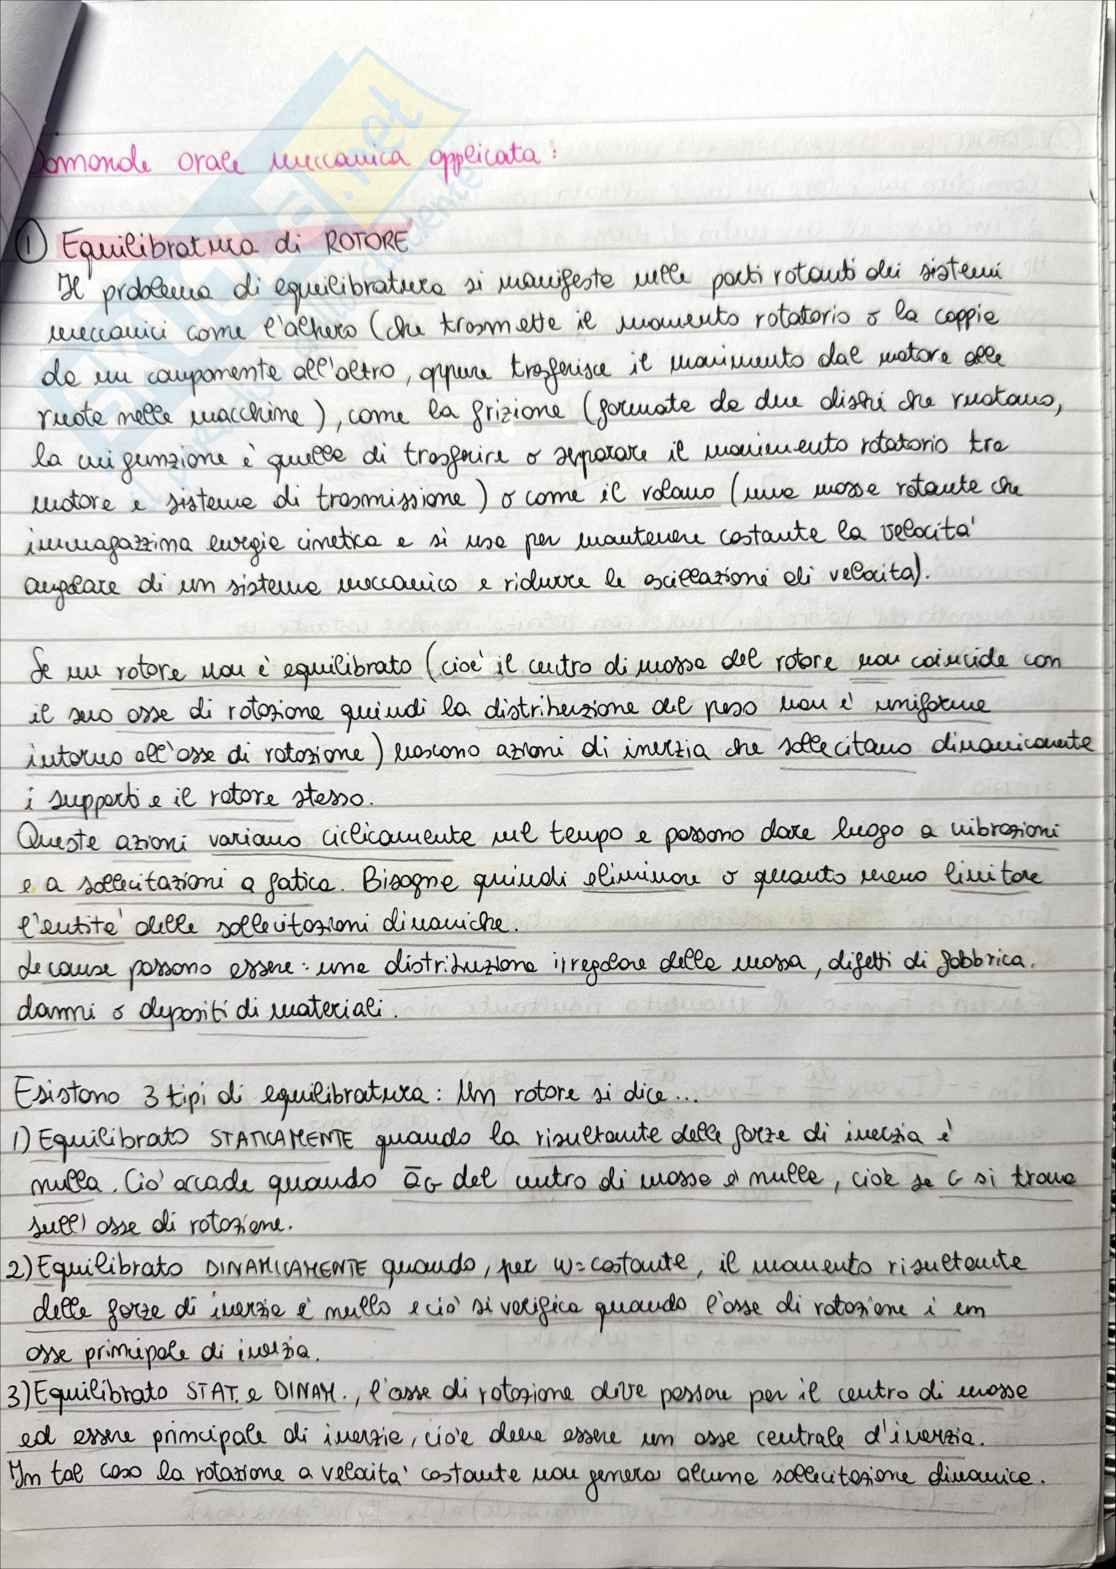 Domande orale meccanica applicata:
① Equilibratura di ROTORE
Il problema di equilibratura si manifesta nelle parti rotanti dei sistemi
meccanici come l'albero (che trasmette il momento rotatorio o la coppia
da un componente all'altro, oppure trasferisce il movimento dal motore alle
ruote nelle macchine), come la frizione (formata da due dischi che ruotano,
la cui funzione è quella di trasferire o separare il movimento rotatorio tra
motore e sistema di trasmissione) o come il volano (una massa rotante che
immagazzina energia cinetica e si usa per mantenere costante la velocità
angolare di un sistema meccanico e ridurre le oscillazioni di velocità).
Se un rotore non è equilibrato (cioè il centro di massa del rotore non coincide con
il suo asse di rotazione quindi la distribuzione del peso non è uniforme
intorno all'asse di rotazione) nascono azioni di inerzia che sollecitano dinamicamente
i supporti e il rotore stesso.
Queste azioni variano ciclicamente nel tempo e possono dare luogo a vibrazioni
e a sollecitazioni a fatica. Bisogna quindi eliminare o quanto meno limitare
l'entità delle sollecitazioni dinamiche.
Le cause possono essere: una distribuzione irregolare della massa, difetti di fabbrica,
danni o depositi di materiali.
Esistono 3 tipi di equilibratura: Un rotore si dice...
1) Equilibrato STATICAMENTE quando la risultante delle forze di inerzia è
nulla. Ciò accade quando āG del centro di massa è nulla, cioè se G si trova
sull'asse di rotazione.
2) Equilibrato DINAMICAMENTE quando, per ω=costante, il momento risultante
delle forze di inerzia è nullo e ciò si verifica quando l'asse di rotazione è un
asse principale di inerzia.
3) Equilibrato STAT. e DINAM., l'asse di rotazione deve passare per il centro di massa
ed essere principale di inerzia, cioè deve essere un asse centrale d'inerzia.
In tal caso la rotazione a velocità costante non genera alcuna sollecitazione dinamica.